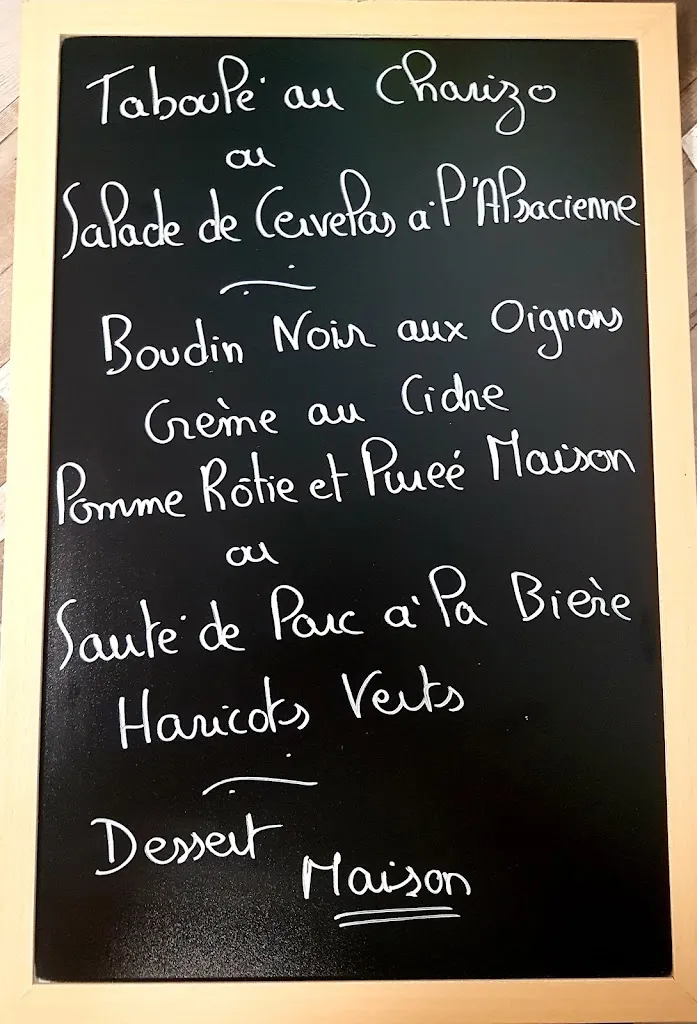 Taboulé au Chorizo
ou
Salade de Cervelas à l'Alsacienne
Boudin Noir aux Oignons
Crème au Cidre
Pomme Rôtie et Pureé Maison
ou
Sauté de Porc à la Bière
Haricots Verts
Dessert
Maison